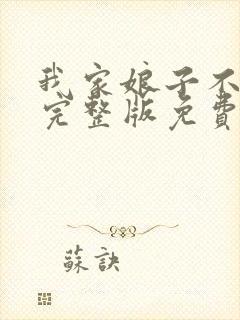 我家娘子不
完整版免費
蘇訣